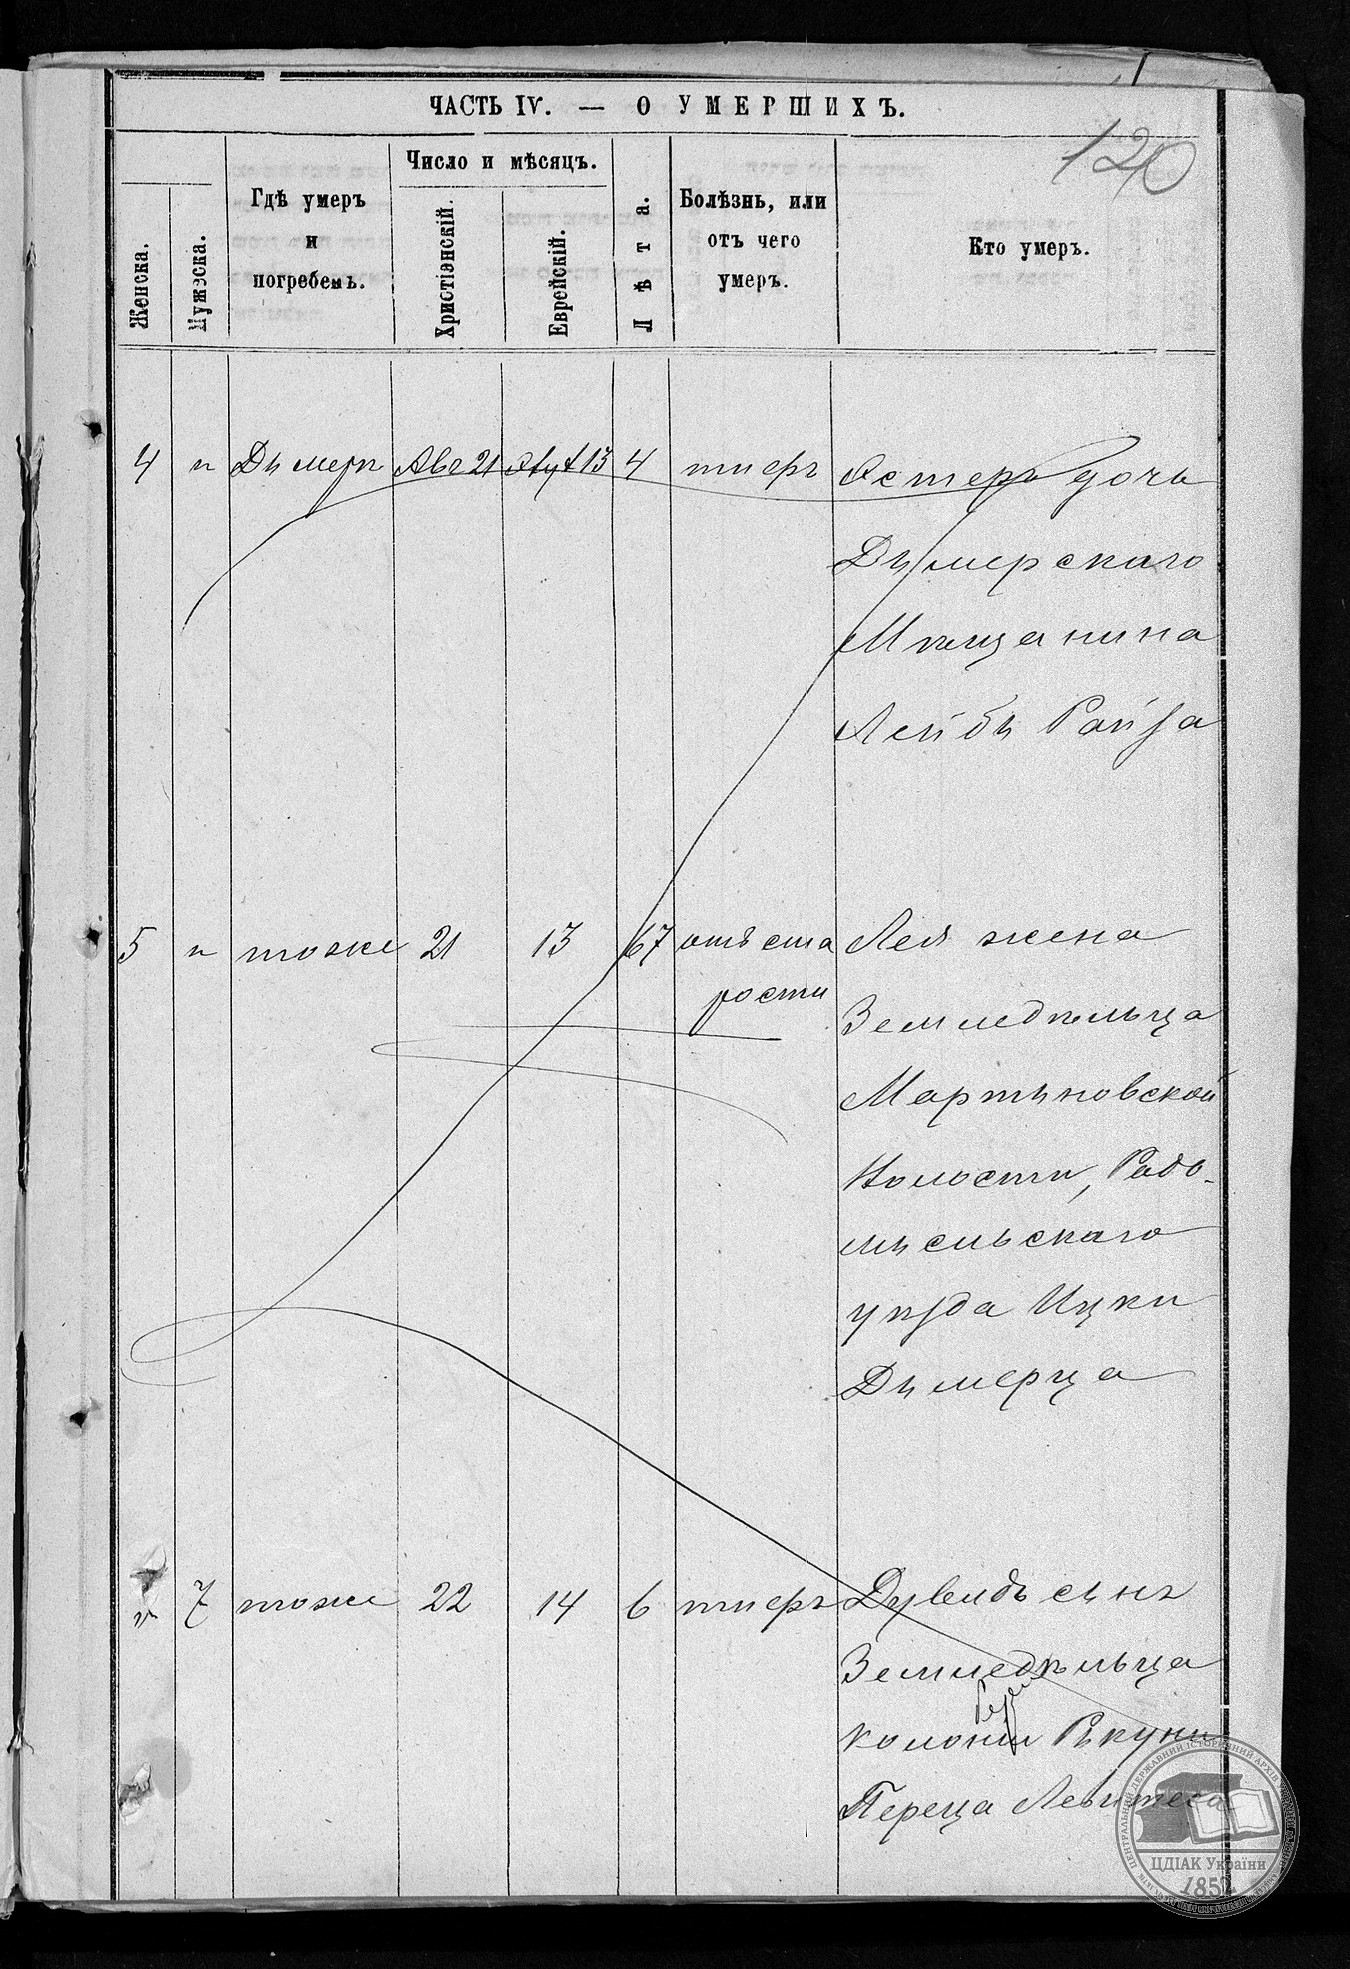 ЧАСТЬ IV. — О УМЕРШИХЪ.
120
Женска.
Мужеска.
Гдѣ умеръ
и
погребенъ.
Число и мѣсяцъ.
Христіанскій.
Еврейскій.
Лѣта.
Болѣзнь, или
отъ чего
умеръ.
Кто умеръ.
4 " Дымеръ Авг 21 13 4 тифъ Эстеръ дочь
Дымерскаго
Мѣщанина
Лейбы Ройза
5 " тоже 21 13 67 отъ ста
рости
Лея жена
Земледѣльца
Мартыновской
Волости, Радо-
мысльскаго
уѣзда Ицки
Дымерца
" 7 тоже 22 14 6 тифъ Дувидъ сынъ
Земледѣльца
колоніи Рыкуни
Переца Левитеса
ЦЕНТРАЛЬНИЙ ДЕРЖАВНИЙ ІСТОРИЧНИЙ АРХІВ УКРАЇНИ
ЦДІАК України
1852